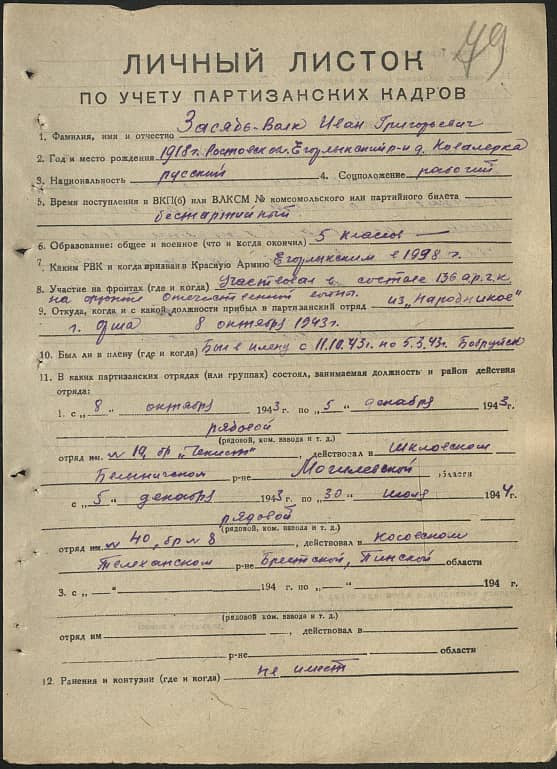 79
ЛИЧНЫЙ ЛИСТОК
ПО УЧЕТУ ПАРТИЗАНСКИХ КАДРОВ
1. Фамилия, имя и отчество Засябь-Волк Иван Григорьевич
2. Год и место рождения 1918 г. Ростовской Егорлыкский р-н д. Ковалерка
3. Национальность русский 4. Соцположение рабочий
5. Время поступления в ВКП(б) или ВЛКСМ № комсомольского или партийного билета
беспартийный
6. Образование: общее и военное (что и когда окончил) 5 классов
7. Каким РВК и когда призван в Красную Армию Егорлыкским в 1938 г.
8. Участие на фронтах (где и когда) Участвовал в составе 136 а.р.г.к
на фронте отечественной войны.
9. Откуда, когда и с какой должности прибыл в партизанский отряд из „Народникое"
г. Орша 8 октября 1943 г.
10. Был ли в плену (где и когда) Был в плену с 11.10.43 г. по 5.3.43 г. Бобруйск
11. В каких партизанских отрядах (или группах) состоял, занимаемая должность и район действия
отряда:
1. с „ 8 " октября 1943 г. по „ 5 " декабря 1943 г.
рядовой
(рядовой, ком. взвода и т. д.)
отряд им. № 19, бр „Чекист" , действовал в Шкловском
Белыничском р-не Могилевской области
с „ 5 " декабря 1943 г. по „ 30 " июля 1944 г.
рядовой
(рядовой, ком. взвода и т. д.)
отряд им. № 40, бр № 8 , действовал в Косовском
Телеханском р-не Брестской, Пинской области
3. с „ " 194 г. по „ " 194 г.
(рядовой, ком. взвода и т. д.)
отряд им , действовал в
р-не области
12. Ранения и контузии (где и когда) не имеет